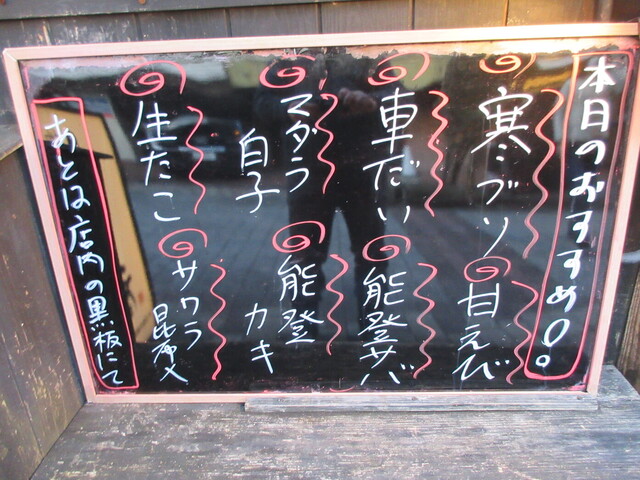 本日のおすすめ!!
寒ブリ
甘えび
車だい
能登サバ
マダラ
白子
能登
カキ
生たこ
サワラ
昆布〆
あとは店内の黒板にて